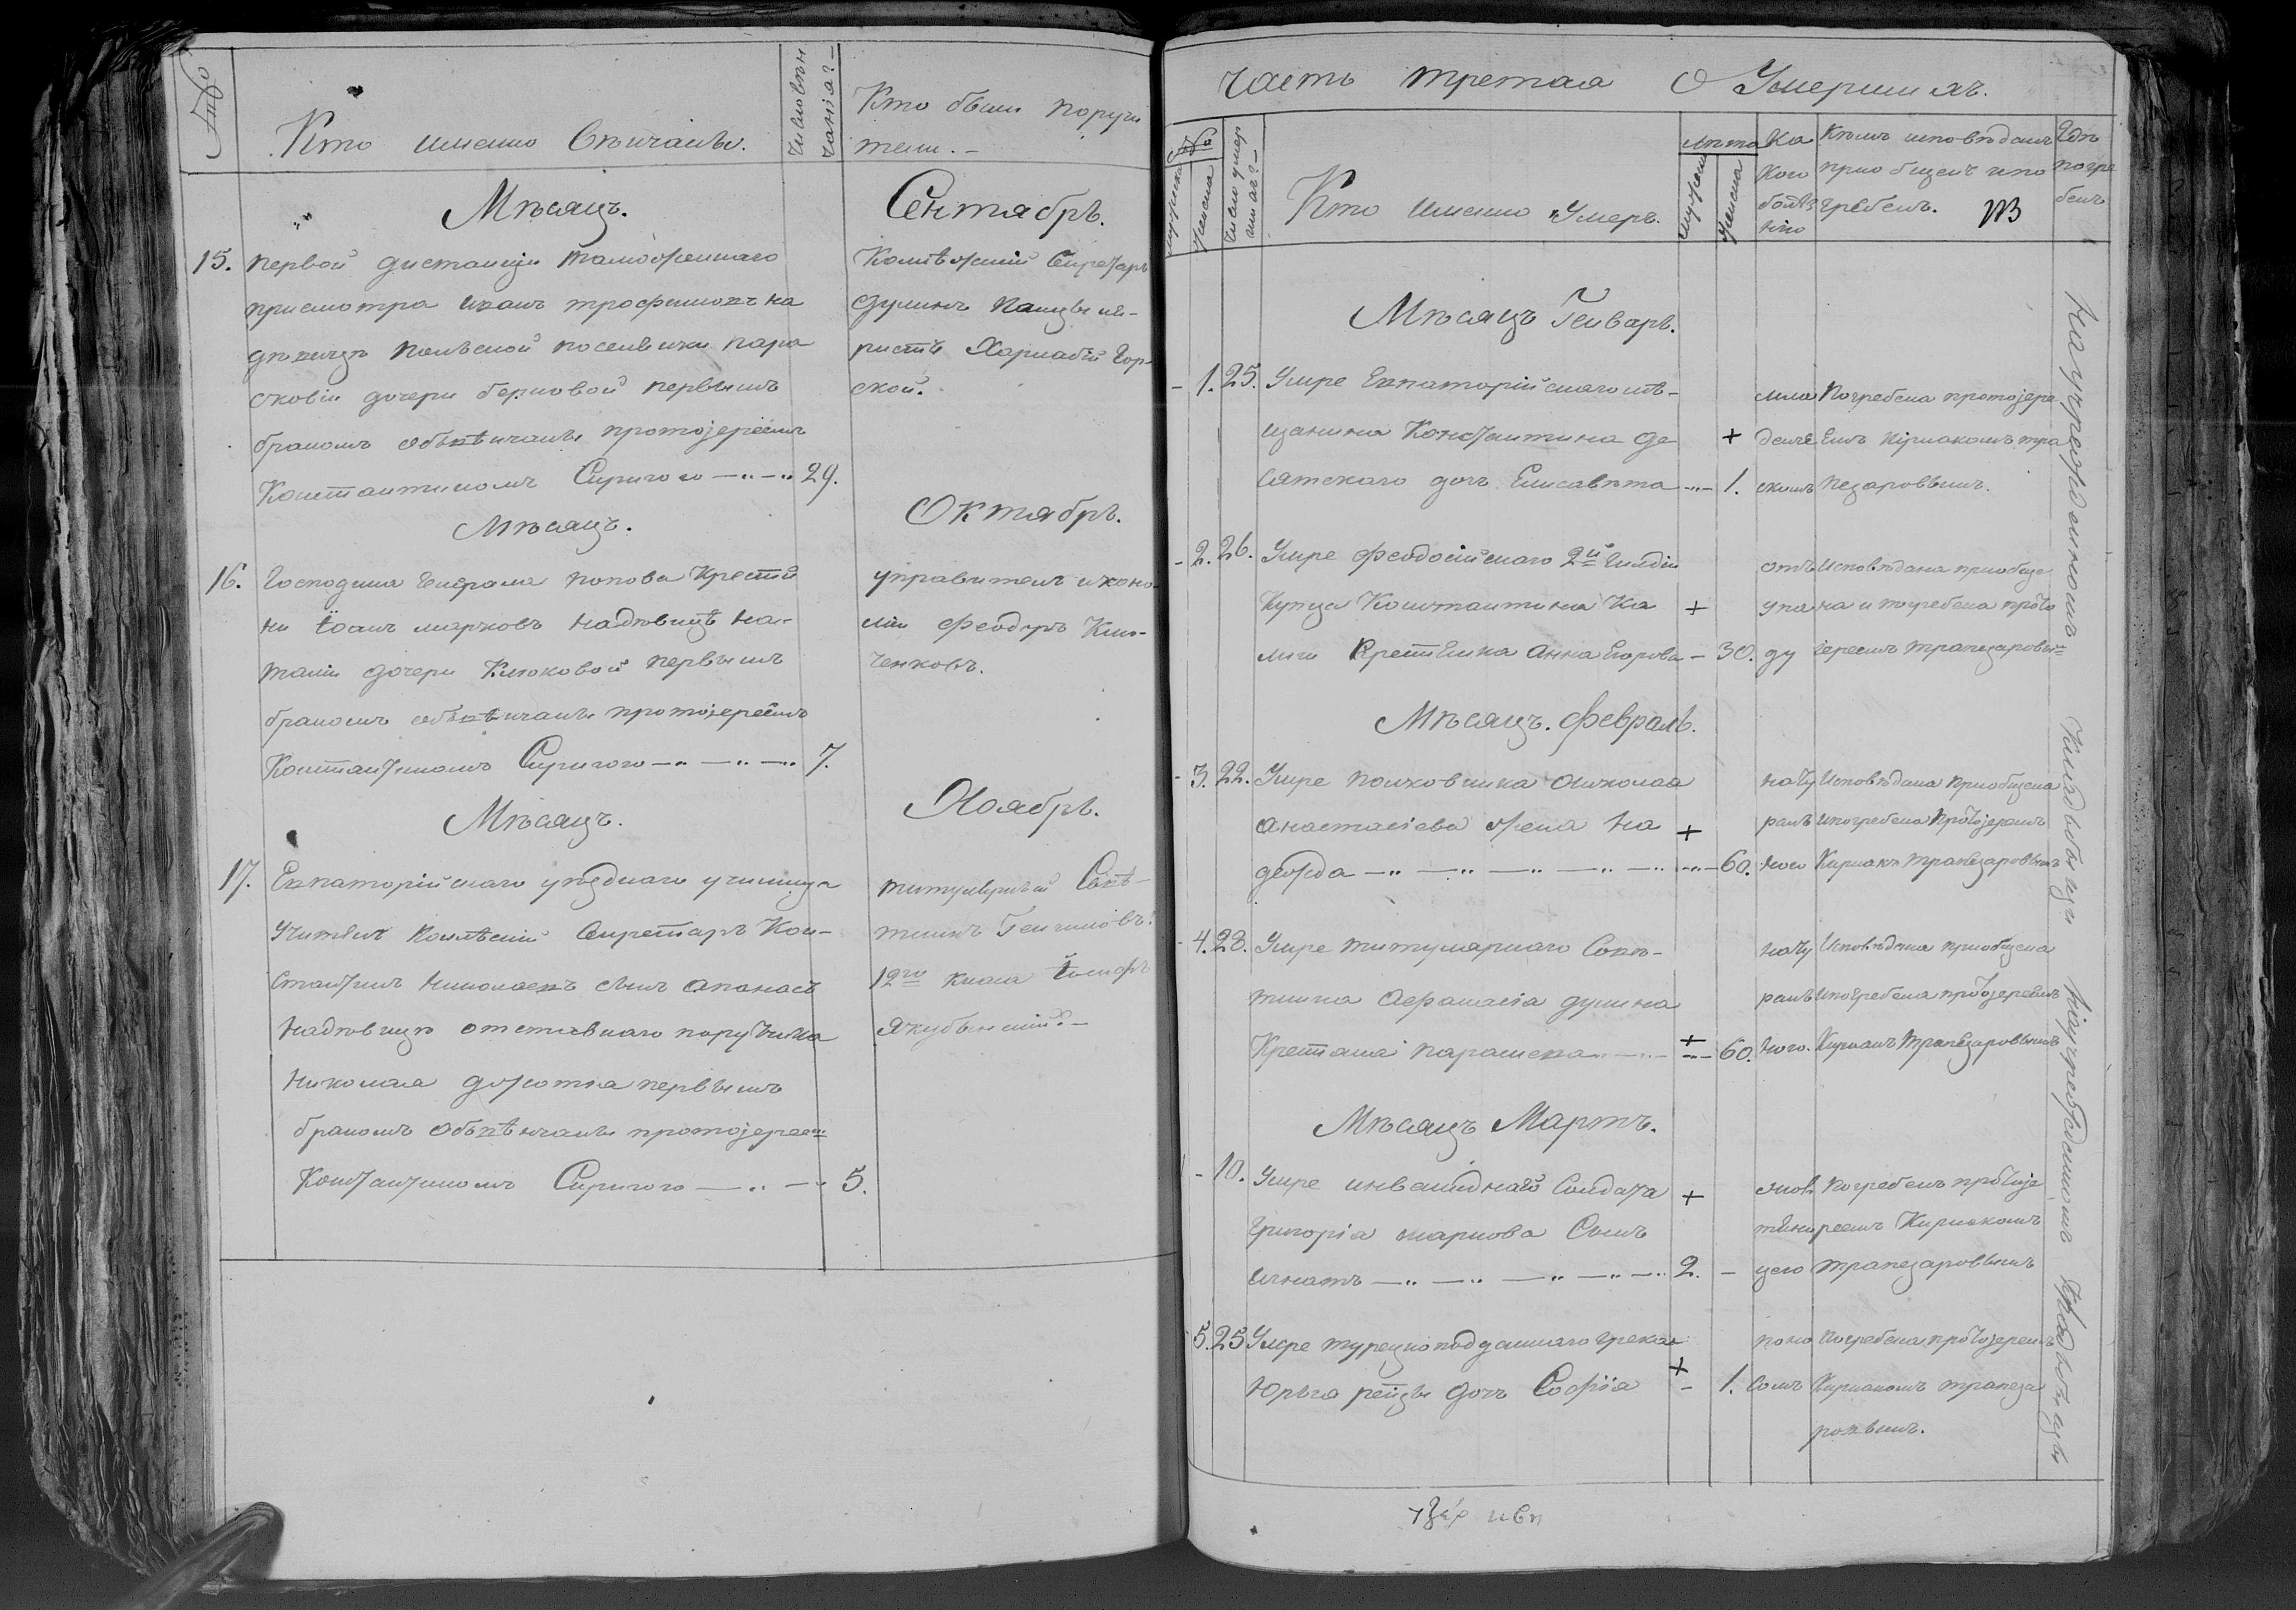 Кто именно Венчанъ.
Число вен
чания?
Кто были поручи
тели.
Мѣсяцъ. Сентябрь.
15. первой дистанции таможеннаго
присмотра Иванъ трофимовъ на
дѣвицѣ поселянки пара
сковiи дочери первымъ
бракомъ обвѣнчаны протоjереемъ
Константиномъ Сиригого 29.
Колѣжскiй Секретарь
Дулинъ Канцеля-
ристъ Харлабiй Гор-
ской.
Мѣсяцъ. Октябрь.
16. Господина Генерала попова Крестья
нъ Іоанъ марковъ на дѣвицѣ На-
талiи дочери Клюковой первымъ
бракомъ обвѣнчаны протоjереемъ
Константиномъ Сиригого 7.
управитель иконо-
мiи Феодоръ Кли-
ченковъ.
Мѣсяцъ. Ноябрь.
17. Евпаторiйскаго уѣзднаго училища
Учитель Колѣскiй Секретарь Кон-
стантинъ Николаевъ сынъ Апанасъ
на дѣвицѣ отставнаго поручика
Николая первымъ
бракомъ обвѣнчаны протоjереем
Константиномъ Сиригого 5.
титулярный Совѣ-
тникъ
12го класа Iосифъ
Якубинскiй
часть третая О Умершихъ.
мужеска
женска
Число умер
шихъ?
Кто именно Умеръ.
лѣта
мужска
женска
Ка
кою
болѣз
нiю
Кѣмъ исповѣданъ
прiобщенъ и по
гребенъ. 103
Гдѣ
погре
бенъ
Мѣсяцъ Генварь.
- 1. 25. Умре Евпаторiйскаго мѣ-
щанина Константина Де
сятскаго дочь Елисавѣта 1.
+
мла
денче
скимъ
Погребена протоjере
емъ Кiрiакомъ тра
пезаровымъ.
- 2. 26. Умре феодосiйскаго 2й Гилдiи
Купца Константина Ка
лги КрестЕнка Анна Егорова - 30.
+
отъ
упа
ду
Исповѣдана приобще
на и погребена прото
iереемъ трапезаровым
Мѣсяцъ. Февраль.
- 3. 22. Умре полковника Николая
Анастасiева жена На
дежда 60.
+
нату
ралъ
ного
Исповѣдана Приобщена
и погребена Протоjереемъ
Кирiакъ Трапезаровымъ
- 4. 28. Умре титулярнаго Совѣ-
тника Афанасiя дулина
Кретiана парашева 60.
+
нату
ралъ
ного.
Исповѣдана приобщена
и погребена протоjереемъ
Кирiакъ Трапезаровымъ
Мѣсяцъ Мартъ.
1 - 10. Умре инвалиднаго Солдата
Григорiя маркова Сынъ
Игнатъ 2. -
+
Погребенъ протоје
реемъ Кирiакомъ
трапезаровымъ
5. 25 Умре турецкоподданнаго грека
Юрьга дочь Софiя - 1.
+
поно
сомъ
Погребена протоjереемъ
Кирiакомъ трапеза
ровымъ.
На учрежденномъ Кладбищи На учрежденномъ Кладбищи